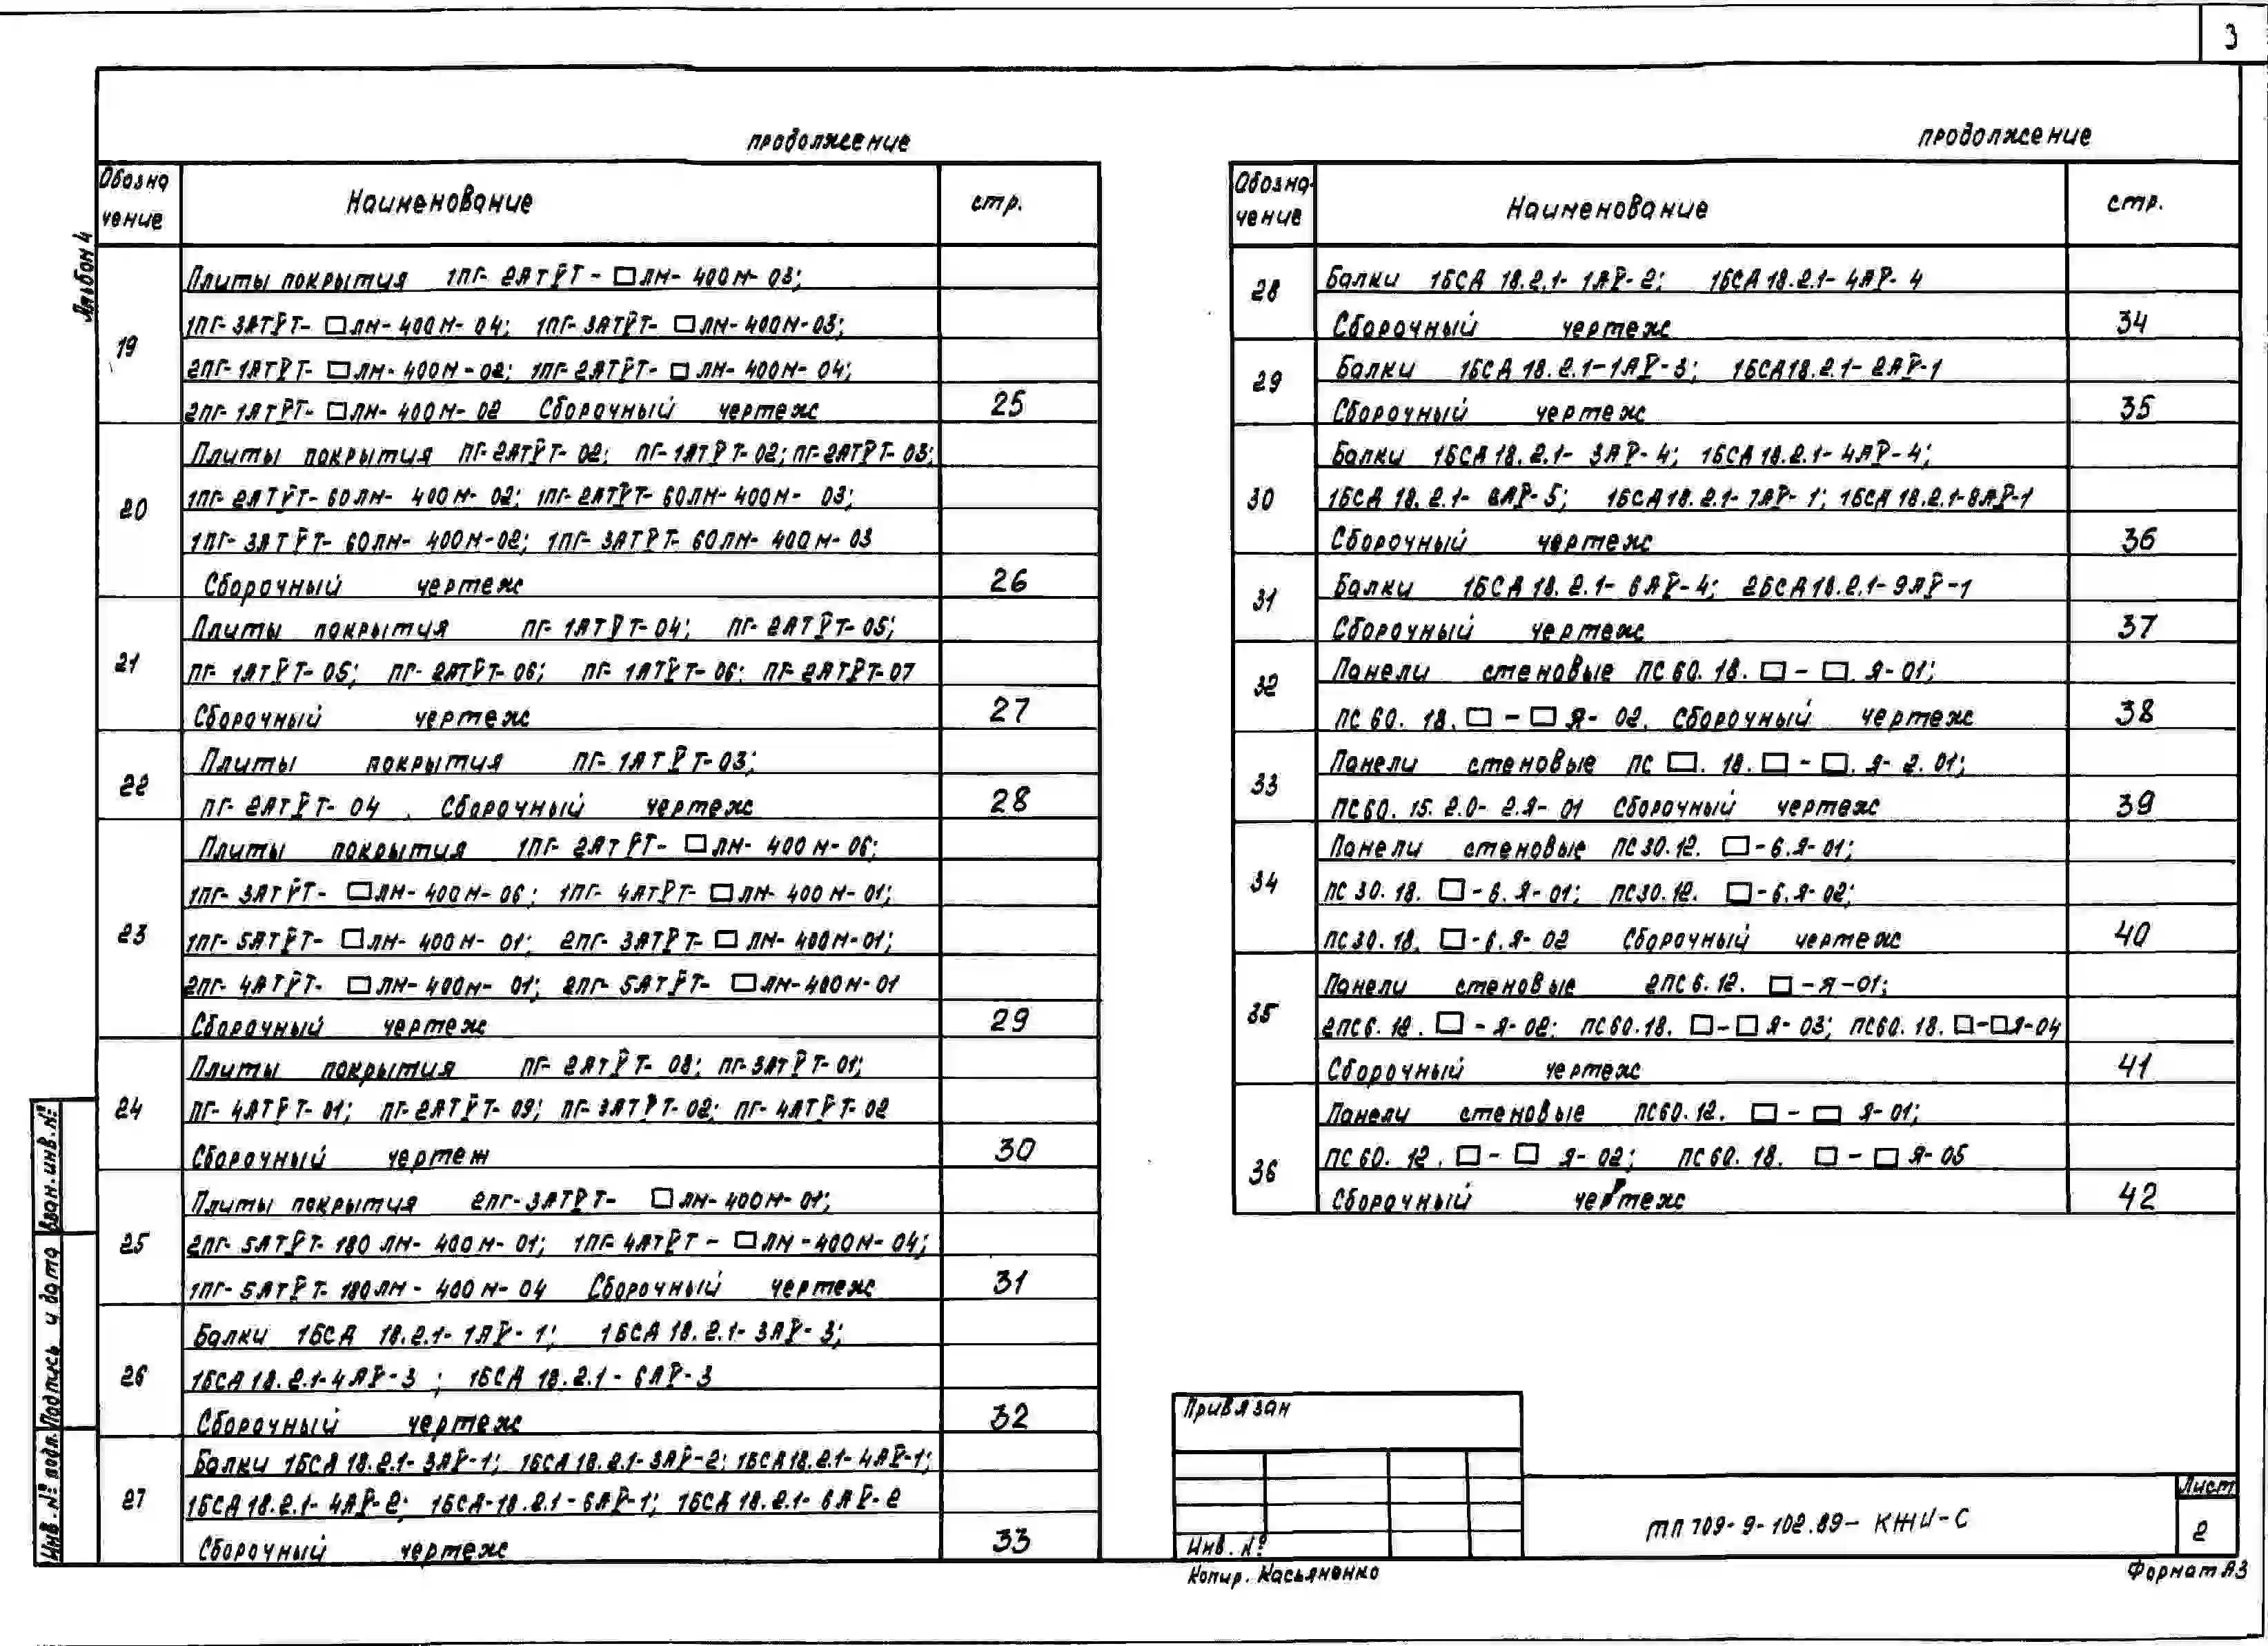 3
Альбом 4
продолжение
Обозна
чение
Наименование
стр.
19
Плиты покрытия 1ПГ-2АТⅣТ-□ЛМ-400М-03;
1ПГ-3АТⅣТ-□ЛМ-400М-04; 1ПГ-3АТⅣТ-□ЛМ-400М-03;
2ПГ-1АТⅣТ-□ЛМ-400М-02; 1ПГ-2АТⅣТ-□ЛМ-400М-04;
2ПГ-1АТⅣТ-□ЛМ-400М-02 Сборочный чертеж 25
20
Плиты покрытия ПГ-2АТⅤТ-02; ПГ-1АТⅤТ-02; ПГ-2АТⅤТ-03;
1ПГ-2АТⅤТ-60ЛМ-400М-02; 1ПГ-2АТⅤТ-60ЛМ-400М-03;
1ПГ-3АТⅤТ-60ЛМ-400М-02; 1ПГ-3АТⅤТ-60ЛМ-400М-03
Сборочный чертеж 26
21
Плиты покрытия ПГ-1АТⅤТ-04; ПГ-2АТⅤТ-05;
ПГ-1АТⅤТ-05; ПГ-2АТⅤТ-06; ПГ-1АТⅤТ-06; ПГ-2АТⅤТ-07
Сборочный чертеж 27
22
Плиты покрытия ПГ-1АТⅤТ-03;
ПГ-2АТⅤТ-04. Сборочный чертеж 28
23
Плиты покрытия 1ПГ-2АТⅤТ-□ЛМ-400М-06;
1ПГ-3АТⅤТ-□ЛМ-400М-06; 1ПГ-4АТⅤТ-□ЛМ-400М-01;
1ПГ-5АТⅤТ-□ЛМ-400М-01; 2ПГ-3АТⅤТ-□ЛМ-400М-01;
2ПГ-4АТⅤТ-□ЛМ-400М-01; 2ПГ-5АТⅤТ-□ЛМ-400М-01
Сборочный чертеж 29
24
Плиты покрытия ПГ-2АТⅤТ-08; ПГ-3АТⅤТ-01;
ПГ-4АТⅤТ-01; ПГ-2АТⅤТ-09; ПГ-3АТⅤТ-02; ПГ-4АТⅤТ-02
Сборочный чертеж 30
25
Плиты покрытия 2ПГ-3АТⅤТ-□ЛМ-400М-01;
2ПГ-5АТⅤТ-180ЛМ-400М-01; 1ПГ-4АТⅤТ-□ЛМ-400М-04;
1ПГ-5АТⅤТ-180ЛМ-400М-04 Сборочный чертеж 31
26
Балки 1БСД 18.2.1-1АⅤ-1; 1БСД 18.2.1-3АⅤ-3;
1БСД 18.2.1-4АⅤ-3; 1БСД 18.2.1-6АⅤ-3
Сборочный чертеж 32
27
Балки 1БСД 18.2.1-3АⅤ-1; 1БСД 18.2.1-3АⅤ-2; 1БСД 18.2.1-4АⅤ-1;
1БСД 18.2.1-4АⅤ-2; 1БСД-18.2.1-6АⅤ-1; 1БСД 18.2.1-6АⅤ-2
Сборочный чертеж 33
продолжение
Обозна-
чение
Наименование
стр.
28
Балки 1БСД 18.2.1-1АⅤ-2; 1БСД 18.2.1-4АⅤ-4
Сборочный чертеж 34
29
Балки 1БСД 18.2.1-1АⅤ-3; 1БСД 18.2.1-2АⅤ-1
Сборочный чертеж 35
30
Балки 1БСД 18.2.1-3АⅤ-4; 1БСД 18.2.1-4АⅤ-4;
1БСД 18.2.1-6АⅤ-5; 1БСД 18.2.1-7АⅤ-1; 1БСД 18.2.1-8АⅤ-1
Сборочный чертеж 36
31
Балки 1БСД 18.2.1-6АⅤ-4; 2БСД 18.2.1-9АⅤ-1
Сборочный чертеж 37
32
Панели стеновые ПС 60.18.□-□.Я-01;
ПС 60.18.□-□ Я-02. Сборочный чертеж 38
33
Панели стеновые ПС □.18.□-□.Я-2.01;
ПС60.15.2.0-2.Я-01 Сборочный чертеж 39
34
Панели стеновые ПС30.12.□-6.Я-01;
ПС 30.18.□-6.Я-01; ПС30.12.□-6.Я-02;
ПС30.18.□-6.Я-02 Сборочный чертеж 40
35
Панели стеновые 2ПС6.12.□-Я-01;
2ПС6.12.□-Я-02; ПС60.18.□-□ Я-03; ПС60.18.□-□Я-04
Сборочный чертеж 41
36
Панели стеновые ПС60.12.□-□ Я-01;
ПС60.12.□-□ Я-02; ПС60.18.□-□ Я-05
Сборочный чертеж 42
Взам.инв.№
Подпись и дата
Инв.№ подл.
Привязан
Инв.№
ТП 709-9-102.89-КЖИ-С
Лист
2
Копир. Касьяненко
Формат А3